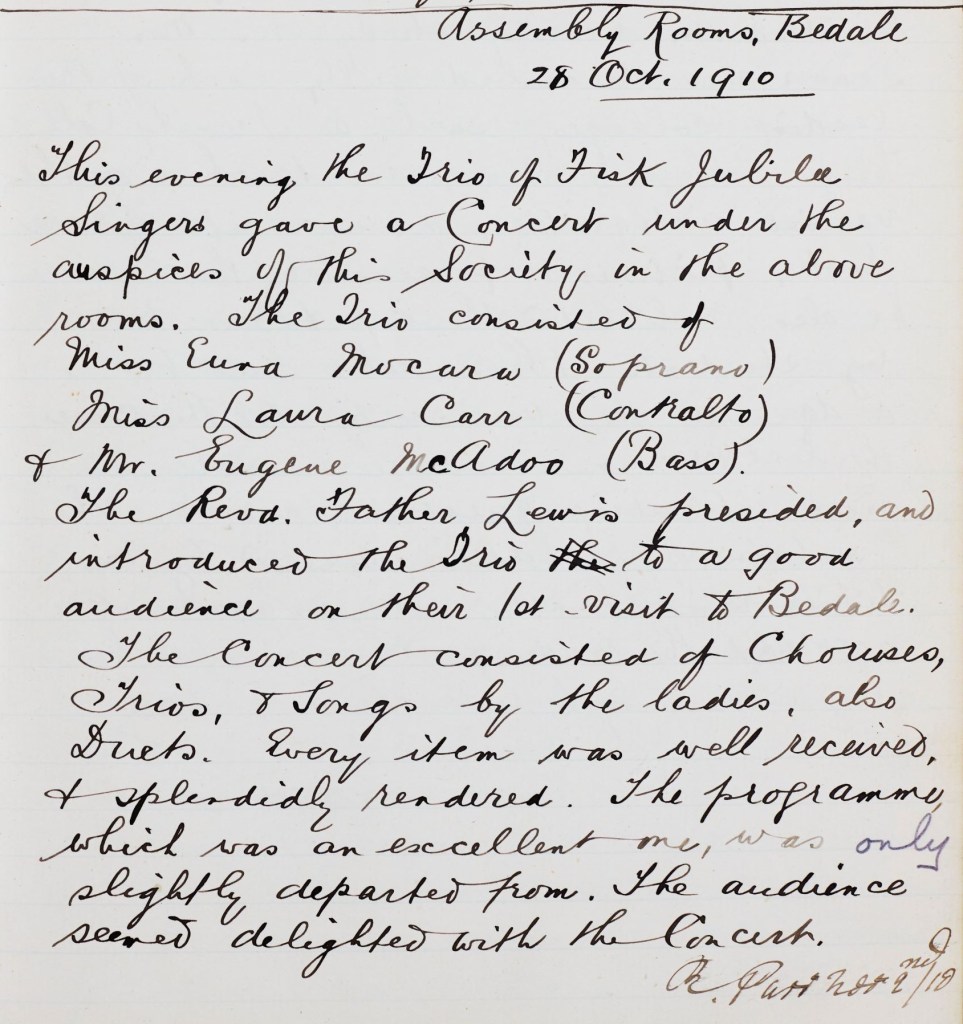 Assembly Rooms, Bedale
28 Oct. 1910
This evening the Trio of Fisk Jubilee
Singers gave a Concert under the
auspices of this Society, in the above
rooms. The Trio consisted of
Miss Euna Mocara (Soprano)
Miss Laura Carr (Contralto)
& Mr. Eugene McAdoo (Bass).
The Revd. Father Lewis presided, and
introduced the Trio the to a good
audience on their 1st visit to Bedale.
The Concert consisted of Choruses,
Trios, & Songs by the ladies, also
Duets. Every item was well received,
& splendidly rendered. The programme,
which was an excellent one, was only
slightly departed from. The audience
seemed delighted with the Concert.
R.